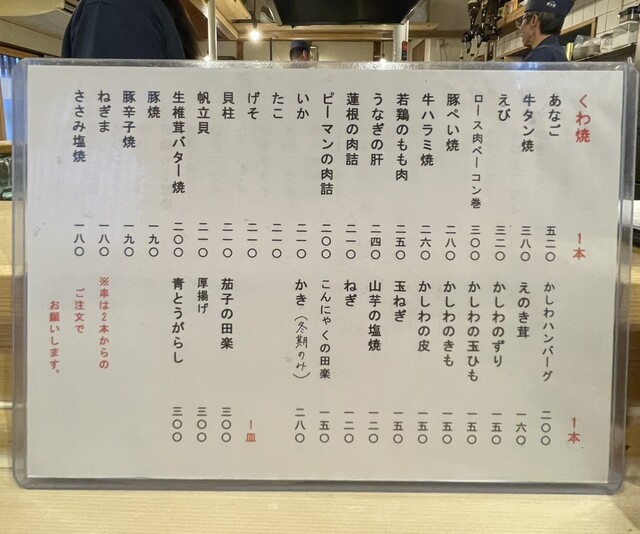 くわ焼 1本
あなご 五二〇
牛タン焼 三八〇
えび 三二〇
ロース肉ベーコン巻 三〇〇
豚ぺい焼 二八〇
牛ハラミ焼 二六〇
若鶏のもも肉 二五〇
うなぎの肝 二四〇
蓮根の肉詰 二一〇
ピーマンの肉詰 二〇〇
いか 二一〇
たこ 二一〇
げそ 二一〇
貝柱 二一〇
帆立貝 二一〇
生椎茸バター焼 二〇〇
豚焼 一九〇
豚辛子焼 一九〇
ねぎま 一八〇
ささみ塩焼 一八〇
1本
かしわハンバーグ 二〇〇
えのき茸 一六〇
かしわのずり 一五〇
かしわの玉ひも 一五〇
かしわのきも 一五〇
かしわの皮 一五〇
玉ねぎ 一五〇
山芋の塩焼 一二〇
ねぎ 一二〇
こんにゃくの田楽 一五〇
かき（冬期のみ） 二八〇
1皿
茄子の田楽 三〇〇
厚揚げ 三〇〇
青とうがらし 三〇〇
※串は2本からの
ご注文で
お願いします。